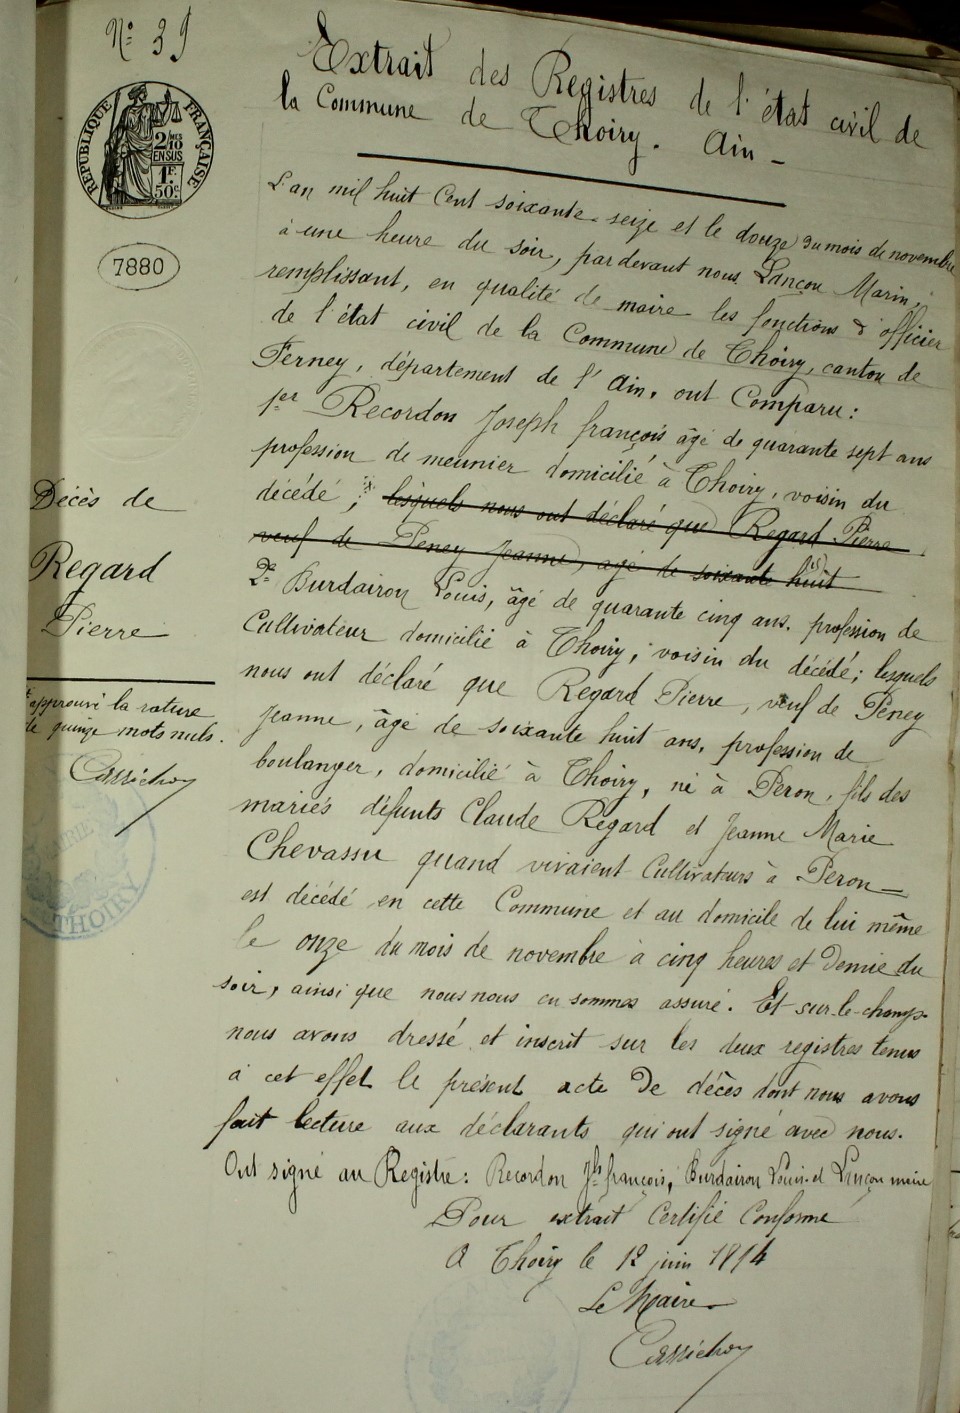 N° 39
Extrait des Registres de l'état civil de
la Commune de Thoiry. Ain -
RÉPUBLIQUE FRANÇAISE
2/10 MES
EN SUS
1F.
50c.
7880
L'an mil huit cent soixante-seize et le douze du mois de novembre
à une heure du soir, pardevant nous Lançon Marin,
remplissant, en qualité de maire les fonctions d'officier
de l'état civil de la Commune de Thoiry, canton de
Ferney, département de l'Ain, ont Comparu:
1er Recordon Joseph françois âgé de quarante sept ans
profession de meunier domicilié à Thoiry, voisin du
décédé; lesquels nous ont déclaré que Regard Pierre
veuf de Peney Jeanne, agé de soixante huit
2e Burdairon Louis, âgé de quarante cinq ans. profession de
Cultivateur domicilié à Thoiry; voisin du décédé; lesquels
nous ont déclaré que Regard Pierre, veuf de Peney
Jeanne, âgé de soixante huit ans, profession de
boulanger, domicilié à Thoiry, né à Peron, fils des
mariés défunts Claude Regard et Jeanne Marie
Chevassu quand vivaient Cultivateurs à Peron—
est décédé en cette Commune et au domicile de lui même
le onze du mois de novembre à cinq heures et demie du
soir, ainsi que nous nous en sommes assuré. Et sur-le-champ
nous avons dressé et inscrit sur les deux registres tenus
à cet effet le présent acte de décès dont nous avons
fait lecture aux déclarants qui ont signé avec nous.
Ont signé au Registre: Recordon Jh françois, Burdairon Louis et Lançon maire
Pour extrait Certifié Conforme
A Thoiry le 12 juin 1894
Le Maire
Décès de
Regard
Pierre
approuvé la rature
de quinze mots nuls.
MAIRIE
THOIRY